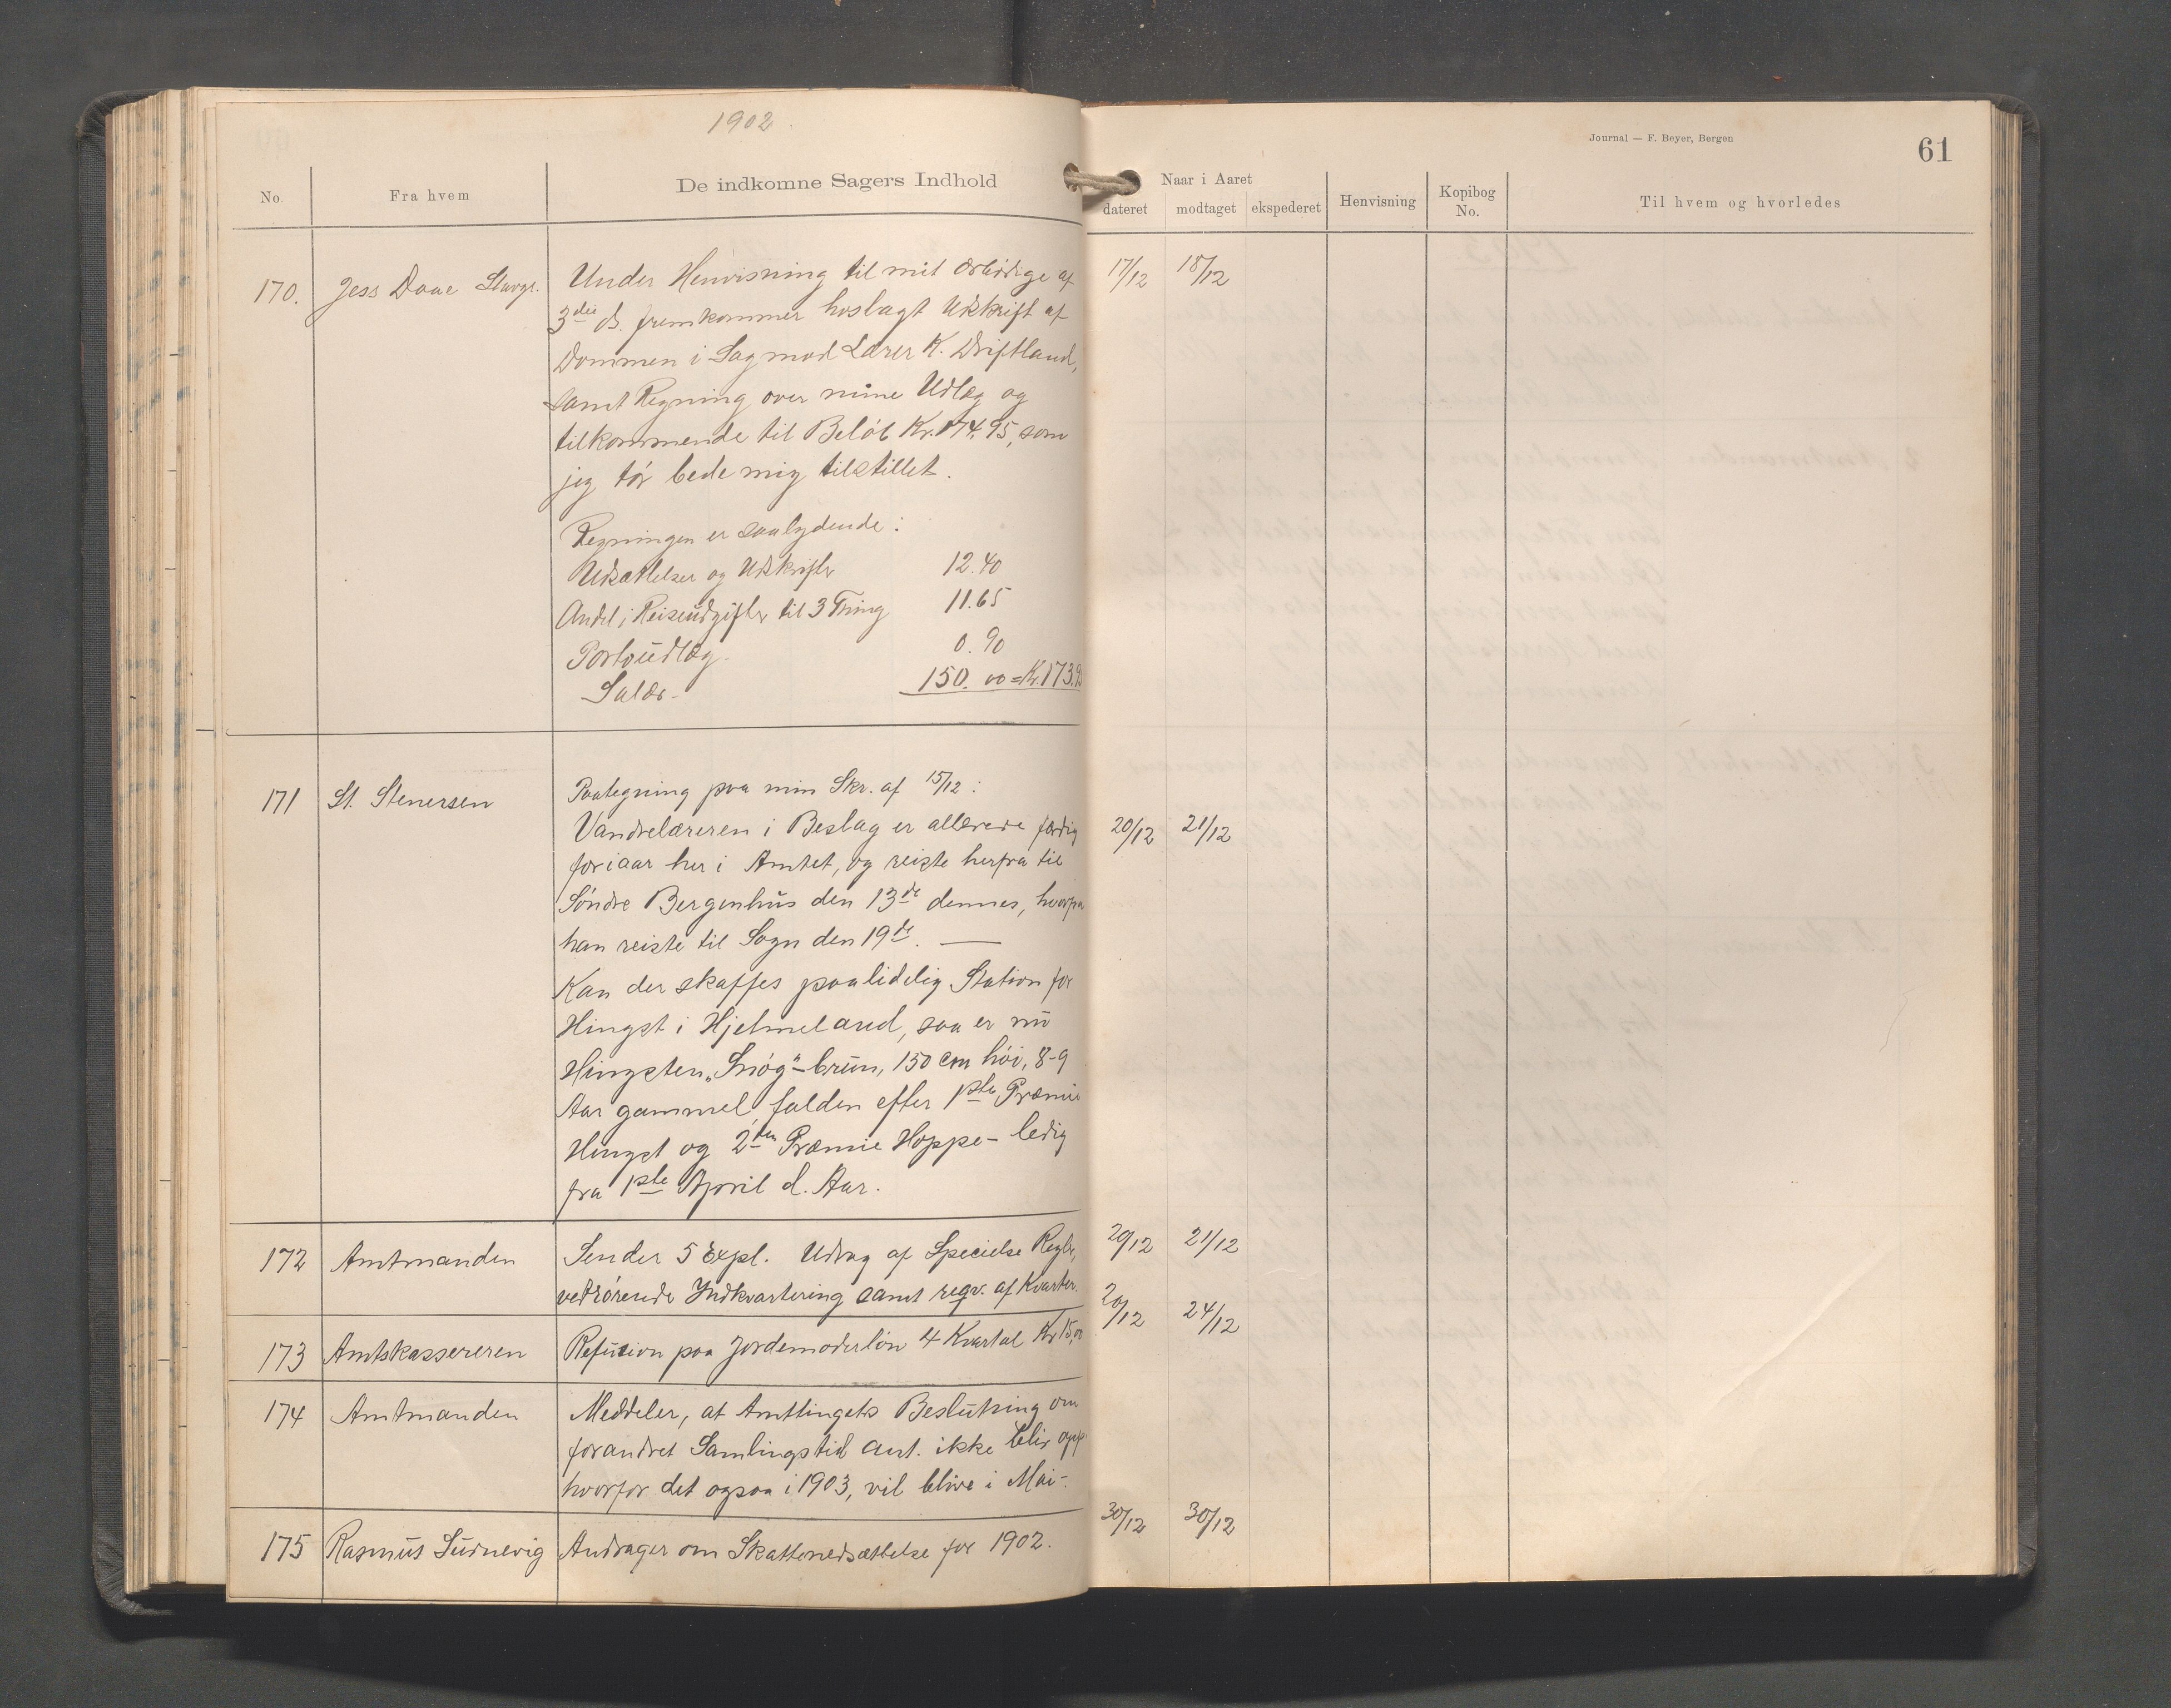 1902.
Journal — F. Beyer, Bergen
61
No.
Fra hvem
De indkomne Sagers Indhold
Naar i Aaret
dateret
modtaget
ekspederet
Henvisning
Kopibog No.
Til hvem og hvorledes
170.
Jess Daae Stavgr.
Under Henvisning til mit ærbødige af
3die ds. fremkommer hoslagt Udskrift af
Dommen i Sag mod Lærer K. Driftland,
samt Regning over mine Udlæg og
tilkommende til Beløb Kr. 174.95, som
jeg tør bede mig tilstillet.
17/12
18/12
Regningen er saalydende:
Udsættelser og Udskrifter 12.40
Andel i Reiseudgifter til 3 Thing 11.65
Portoudlæg. 0.90
Salær - 150.00 = Kr. 173.95
171
St. Stenersen
Paategning paa min Skr. af 15/12:
Vandrelæreren i Beslag er allerede færdig
for iaar her i Amtet, og reiste herfra til
Søndre Bergenhus den 13de dennes, hvorfra
han reiste til Sogn den 19de. —
Kan der skaffes paalidelig Station for
Hingst i Hjelmeland, saa er nu
Hingsten „Snøg" - brun, 150 cm høi, 8-9
Aar gammel, falden efter 1ste Præmie
Hingst og 2den Præmie Hoppe - ledig
fra 1ste April d. Aar.
20/12
21/12
172
Amtmanden
Sender 5 Expl. Udrag af Specielse Regle,
vedrørende Indkvartering samt regv. af Kvarter.
20/12
21/12
173
Amtskassereren
Refusion paa Jordemoderløn 4 Kvartal Kr 15,00
20/12
24/12
174
Amtmanden
Meddeler, at Amttingets Beslutning om
forandret Samlingstid ant. ikke blir opp
hvorfor det ogsaa i 1903, vil blive i Mai-.
175
Rasmus Sudnevig
Andrager om Skattenedsættelse for 1902.
30/12
30/12